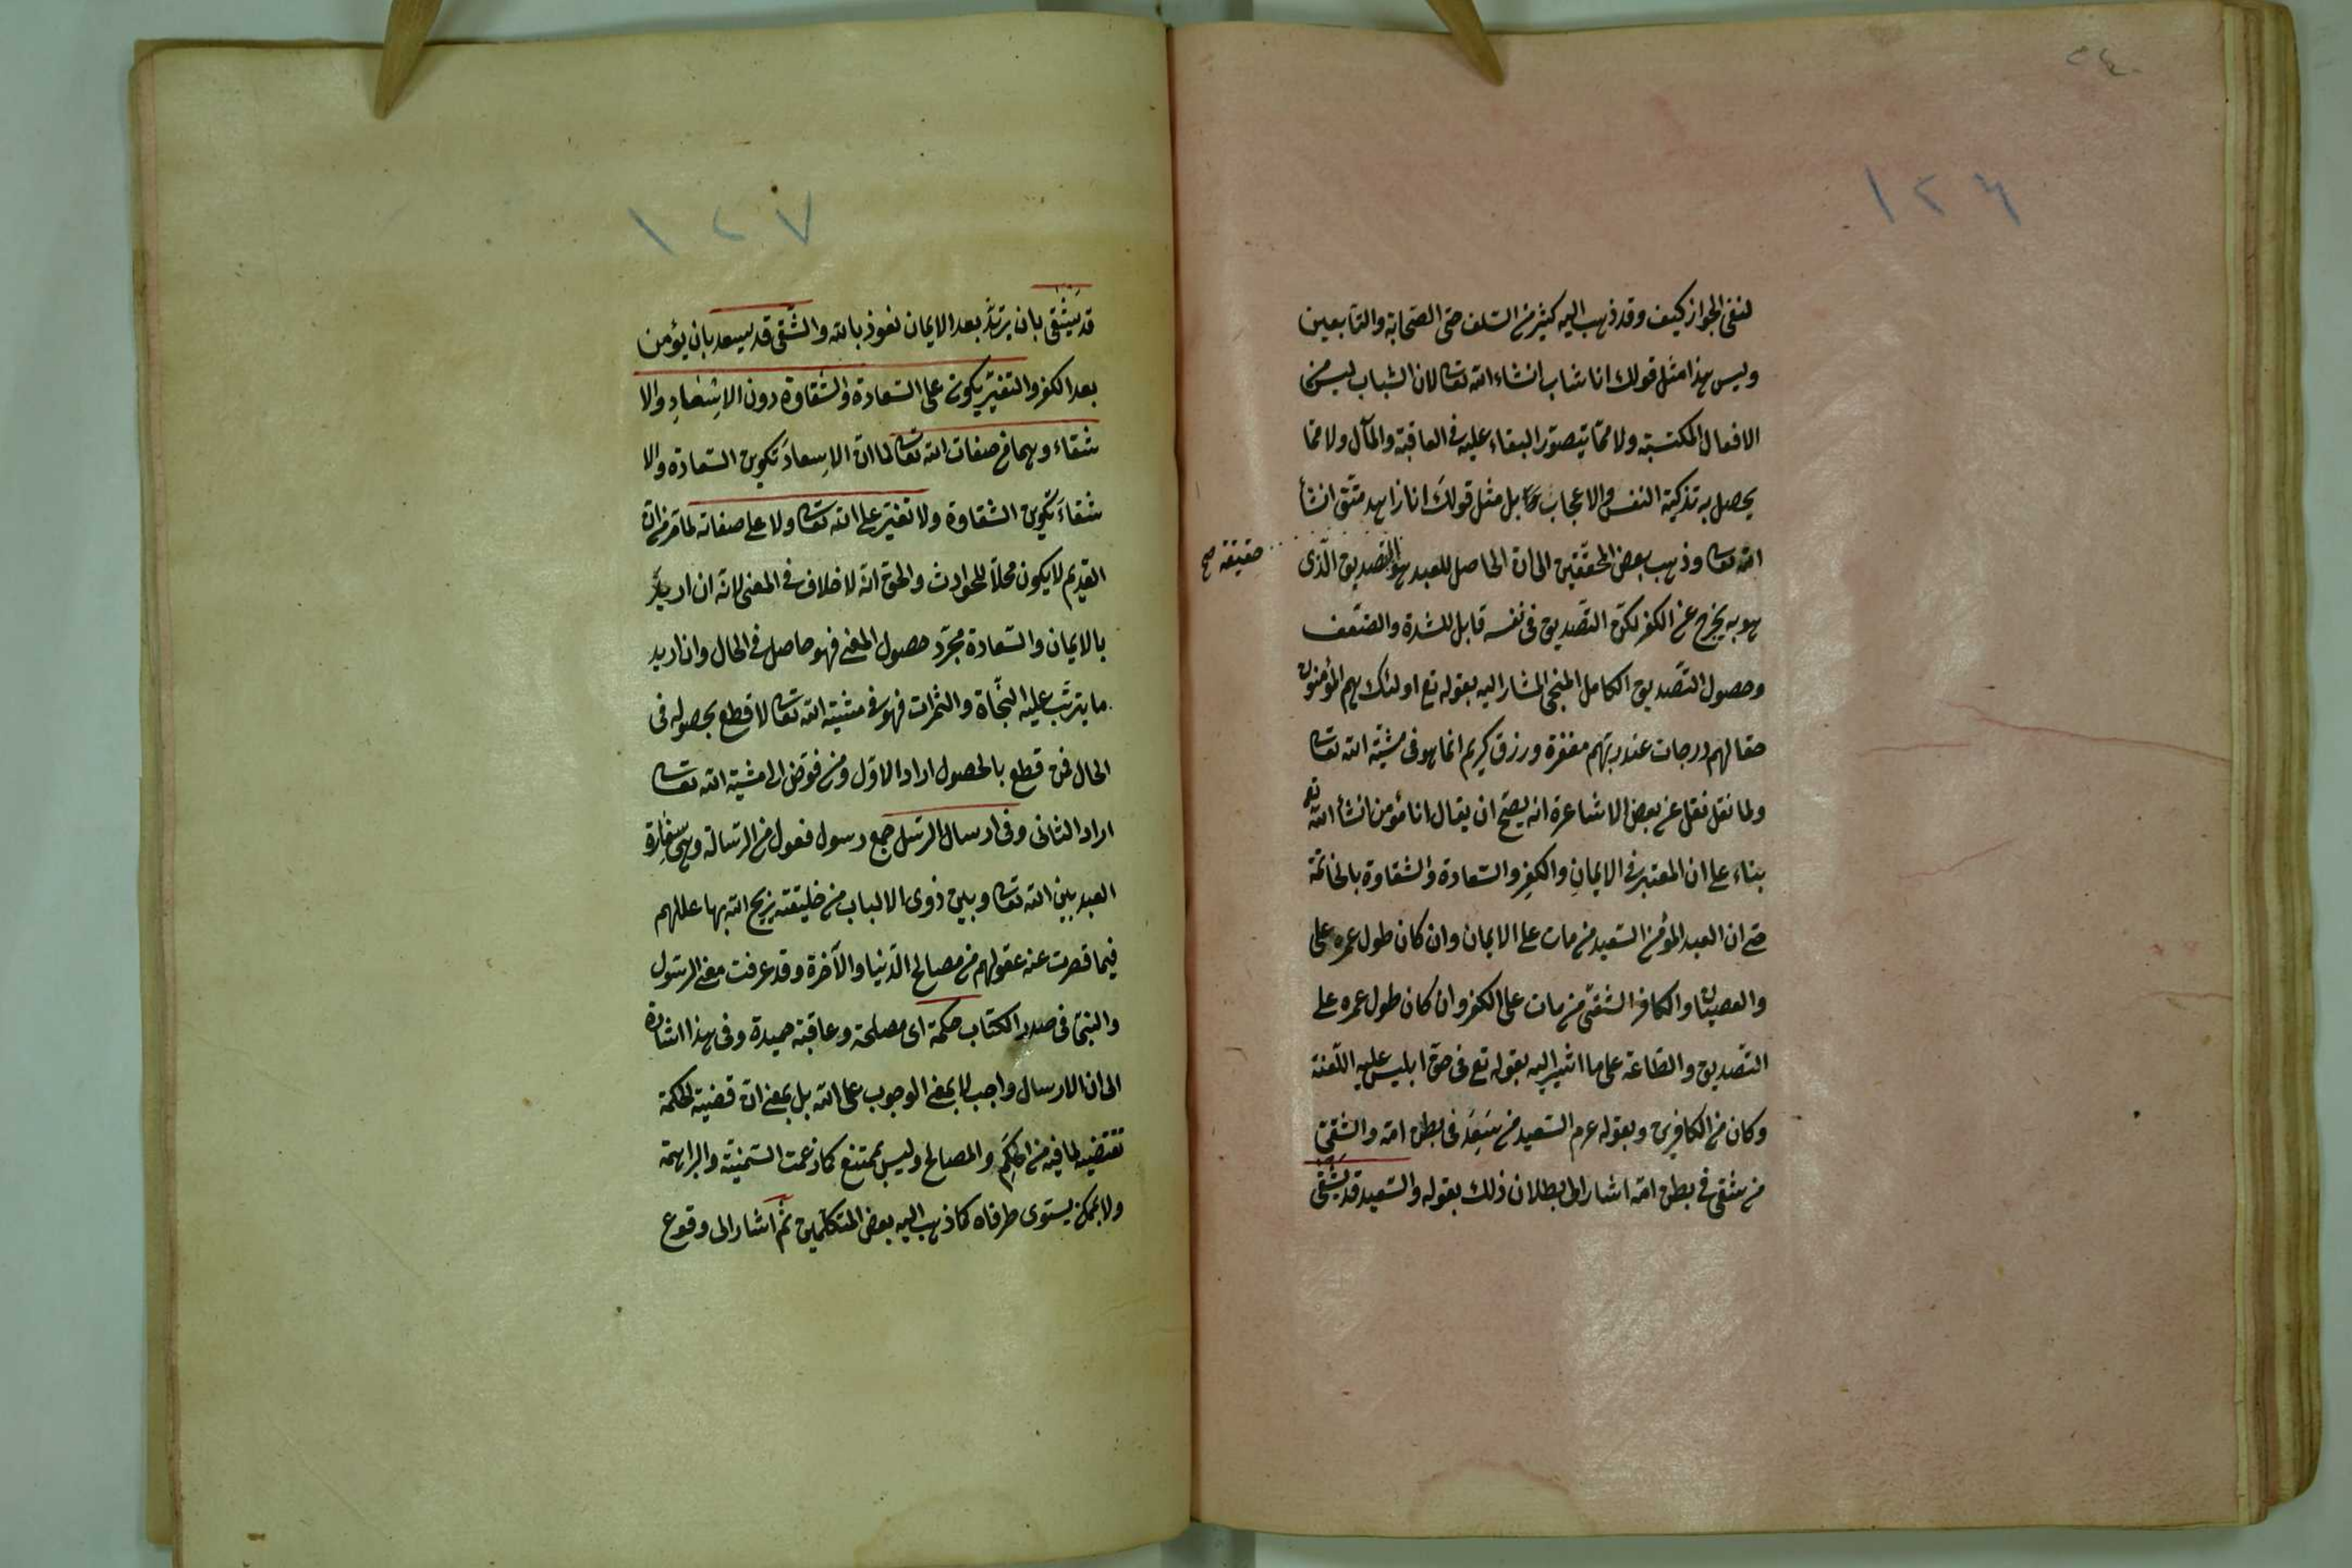 ١٢٦
لنفى الجواز كيف وقد ذهب اليه كثير من السلف حتى الصحابة والتابعين
وليس هذا مثل قولك انا شاب انشاء الله تعالى لان الشباب ليس من
الافعال المكتسبة ولا ممّا يتصوّر البقاء عليه فى العاقبة والمآل ولا ممّا
يحصل به تزكية النفس والاعجاب بل مثل قولك انا زاهد متّق انشأ
الله تعالى وذهب بعض المحقّقين الى انّ الحاصل للعبد هو التصديق الّذى
حقيقة صح
هو به يخرج عن الكفر لكنّ التّصديق فى نفسه قابل للشدة والضّعف
وحصول التّصديق الكامل المنجى المشار اليه بقوله تع اولئك هم المؤمنون
حقا لهم درجات عند ربّهم مغفرة ورزق كريم انما هو فى مشيّة الله تعالى
ولما نقل فقل عن بعض الاشاعرة انه يصحّ ان يقال انا مؤمن انشأ الله تع
بناء على ان المعتبر فى الايمانِ والكفِر والسّعادة والشقاوة بالخاتمة
حتى ان العبد المؤمن السّعيد من مات على الايمان وان كان طول عمره على
والعصيان والكافر الشقىّ من مات على الكفر وان كان طول عمره على
التّصديق والطّاعة على ما اشير اليه بقوله تع فى حق ابليس عليه اللّعنة
وكان من الكافرين وبقوله عرم السّعيد من سَعِدَ فى بطن امّه والشقىّ
من شقى فى بطن امّه اشار الى ابطلان ذلك بقوله والسّعيد قد يشقى
١٢٧
قد يَشْقى بان يرتدّ بعد الايمان نعوذ بالله والشّقى قد يسعد بان يؤمن
بعد الكفر والتغيّر يكون على السّعادة والشقاوة دون الاِسْعادِ والا
شقاء وهما من صفات الله تعالى لما انّ الاِسعادَ تكوين السّعادة والا
شقاءَ تكوين الشقاوة ولا تغيّر على الله تعالى ولا على صفاته لما مّر من ان
القديم لا يكون محلاً للحوادث والحق انّه لا خلاف فى المعنى لانّه ان اريد
بالايمان والسّعادة مجرّد حصول المعنى فهو حاصل فى الحال وان اريد
ما يترتّب عليه النّجاة والثمرات فهو فى مشيّة الله تعالى لا قطع بحصوله فى
الحال فمن قطع بالحصول اراد الاوّل ومن فوّض الى مشيّة الله تعالى
اراد الثانى وفى ارسال الرسل جمع رسول فعول من الرّسالة وهى سِفارة
العبد بين الله تعالى وبين ذوى الالباب من خليقته يزيح الله بها عللهم
فيما قصرت عنه عقولهم من مصالح الدّنيا والآخرة وقد عرفت معنى الرسول
والنبى فى صدر الكتاب حكمة اى مصلحة وعاقبة حميدة وفى هذا اشارة
الى ان الارسال واجب لا بمعنى الوجوب على الله بل بمعنى انّ قضية الحكمة
تقتضيه لما فيه من الحِكَمِ والمصالح وليس بممتنع كما زعمت السّمنيّة والبراهمة
ولا بممكن يستوى طرفاه كما ذهب اليه بعض المتكلّمين ثمّ اشار الى وقوع